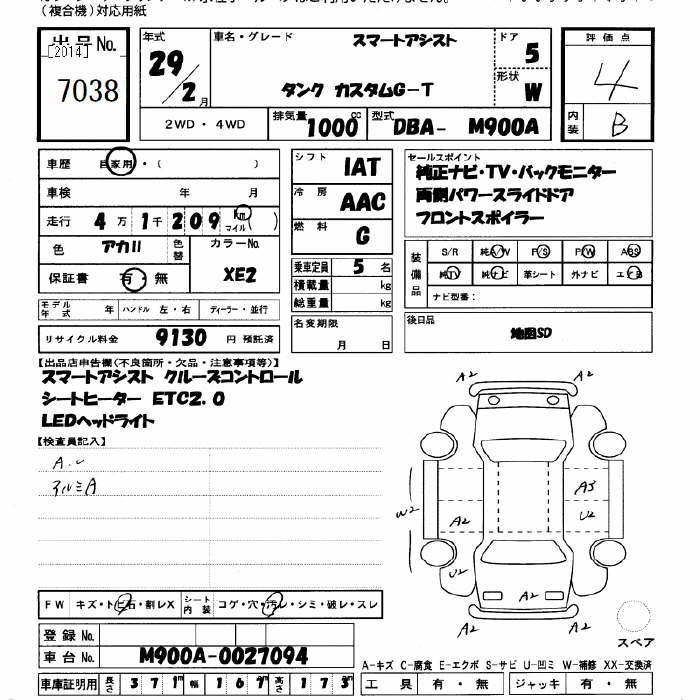 （複合機）対応用紙
出品No.
[2014]
7038
年式
29/2月
車名・グレード
スマートアシスト
タンク カスタムG-T
ドア
5
形状
W
評価点
4
内装
B
2WD・4WD
排気量
1000cc
型式
DBA- M900A
車歴 自家用・（ ）
車検 年 月
走行 4万1千209 Km マイル（ ）
色 アカII 色替 カラーNo. XE2
保証書 有・無
シフト IAT
冷房 AAC
燃料 G
乗車定員 5名
積載量 kg
総重量 kg
セールスポイント
純正ナビ・TV・バックモニター
両側パワースライドドア
フロントスポイラー
装備品
S/R 純A/W P/S P/W ABS
純TV 純ナビ 革シート 外ナビ エアB
ナビ型番：
モデル年式 年 ハンドル 左・右 ディーラー・並行
リサイクル料金 9130 円 預託済
名変期限 月 日
後日品
地図SD
【出品店申告欄(不良箇所・欠品・注意事項等)】
スマートアシスト クルーズコントロール
シートヒーター ETC2.0
LEDヘッドライト
【検査員記入】
アルミA
A2 A2
A3
W2 A2 U2
U2
A2
A2 A2
スペア
FW キズ・トビ石・割レX シート内装 コゲ・穴・汚レ・シミ・破レ・スレ
登録No.
車台No. M900A-0027094
A-キズ C-腐食 E-エクボ S-サビ U-凹ミ W-補修 XX-交換済
車庫証明用 長さ 371 幅 167 高さ 173
工具 有・無 ジャッキ 有・無